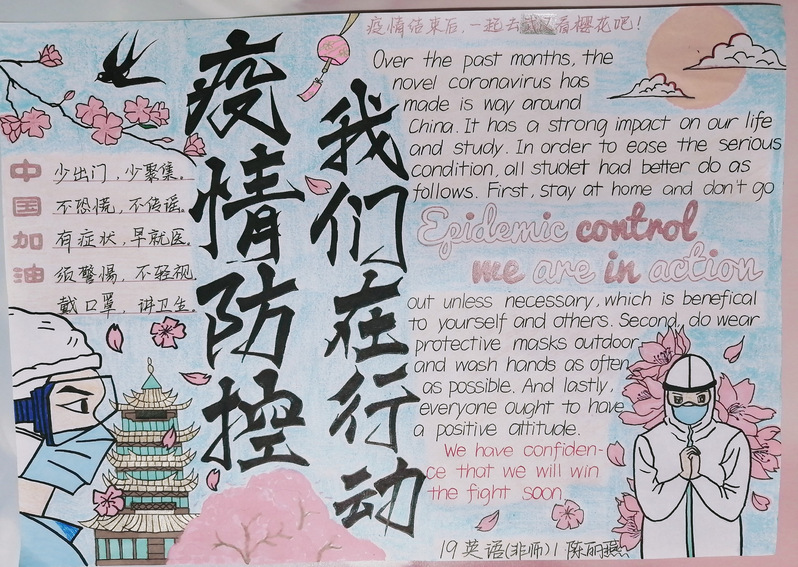 疫情结束后，一起去看樱花吧！
疫情防控
我们在行动
中国加油
少出门，少聚集。
不恐慌，不传谣。
有症状，早就医。
须警惕，不轻视。
戴口罩，讲卫生。
Over the past months, the
novel coronavirus has
made is way around
China. It has a strong impact on our life
and study. In order to ease the serious
condition, all studet had better do as
follows. First, stay at home and don't go
Epidemic control
we are in action
out unless necessary, which is benefical
to yourself and others. Second, do wear
protective masks outdoor
and wash hands as often
as possible. And lastly,
everyone ought to have
a positive attitude.
We have confiden-
ce that we will win
the fight soon.
19英语(非师)1 陈丽燕